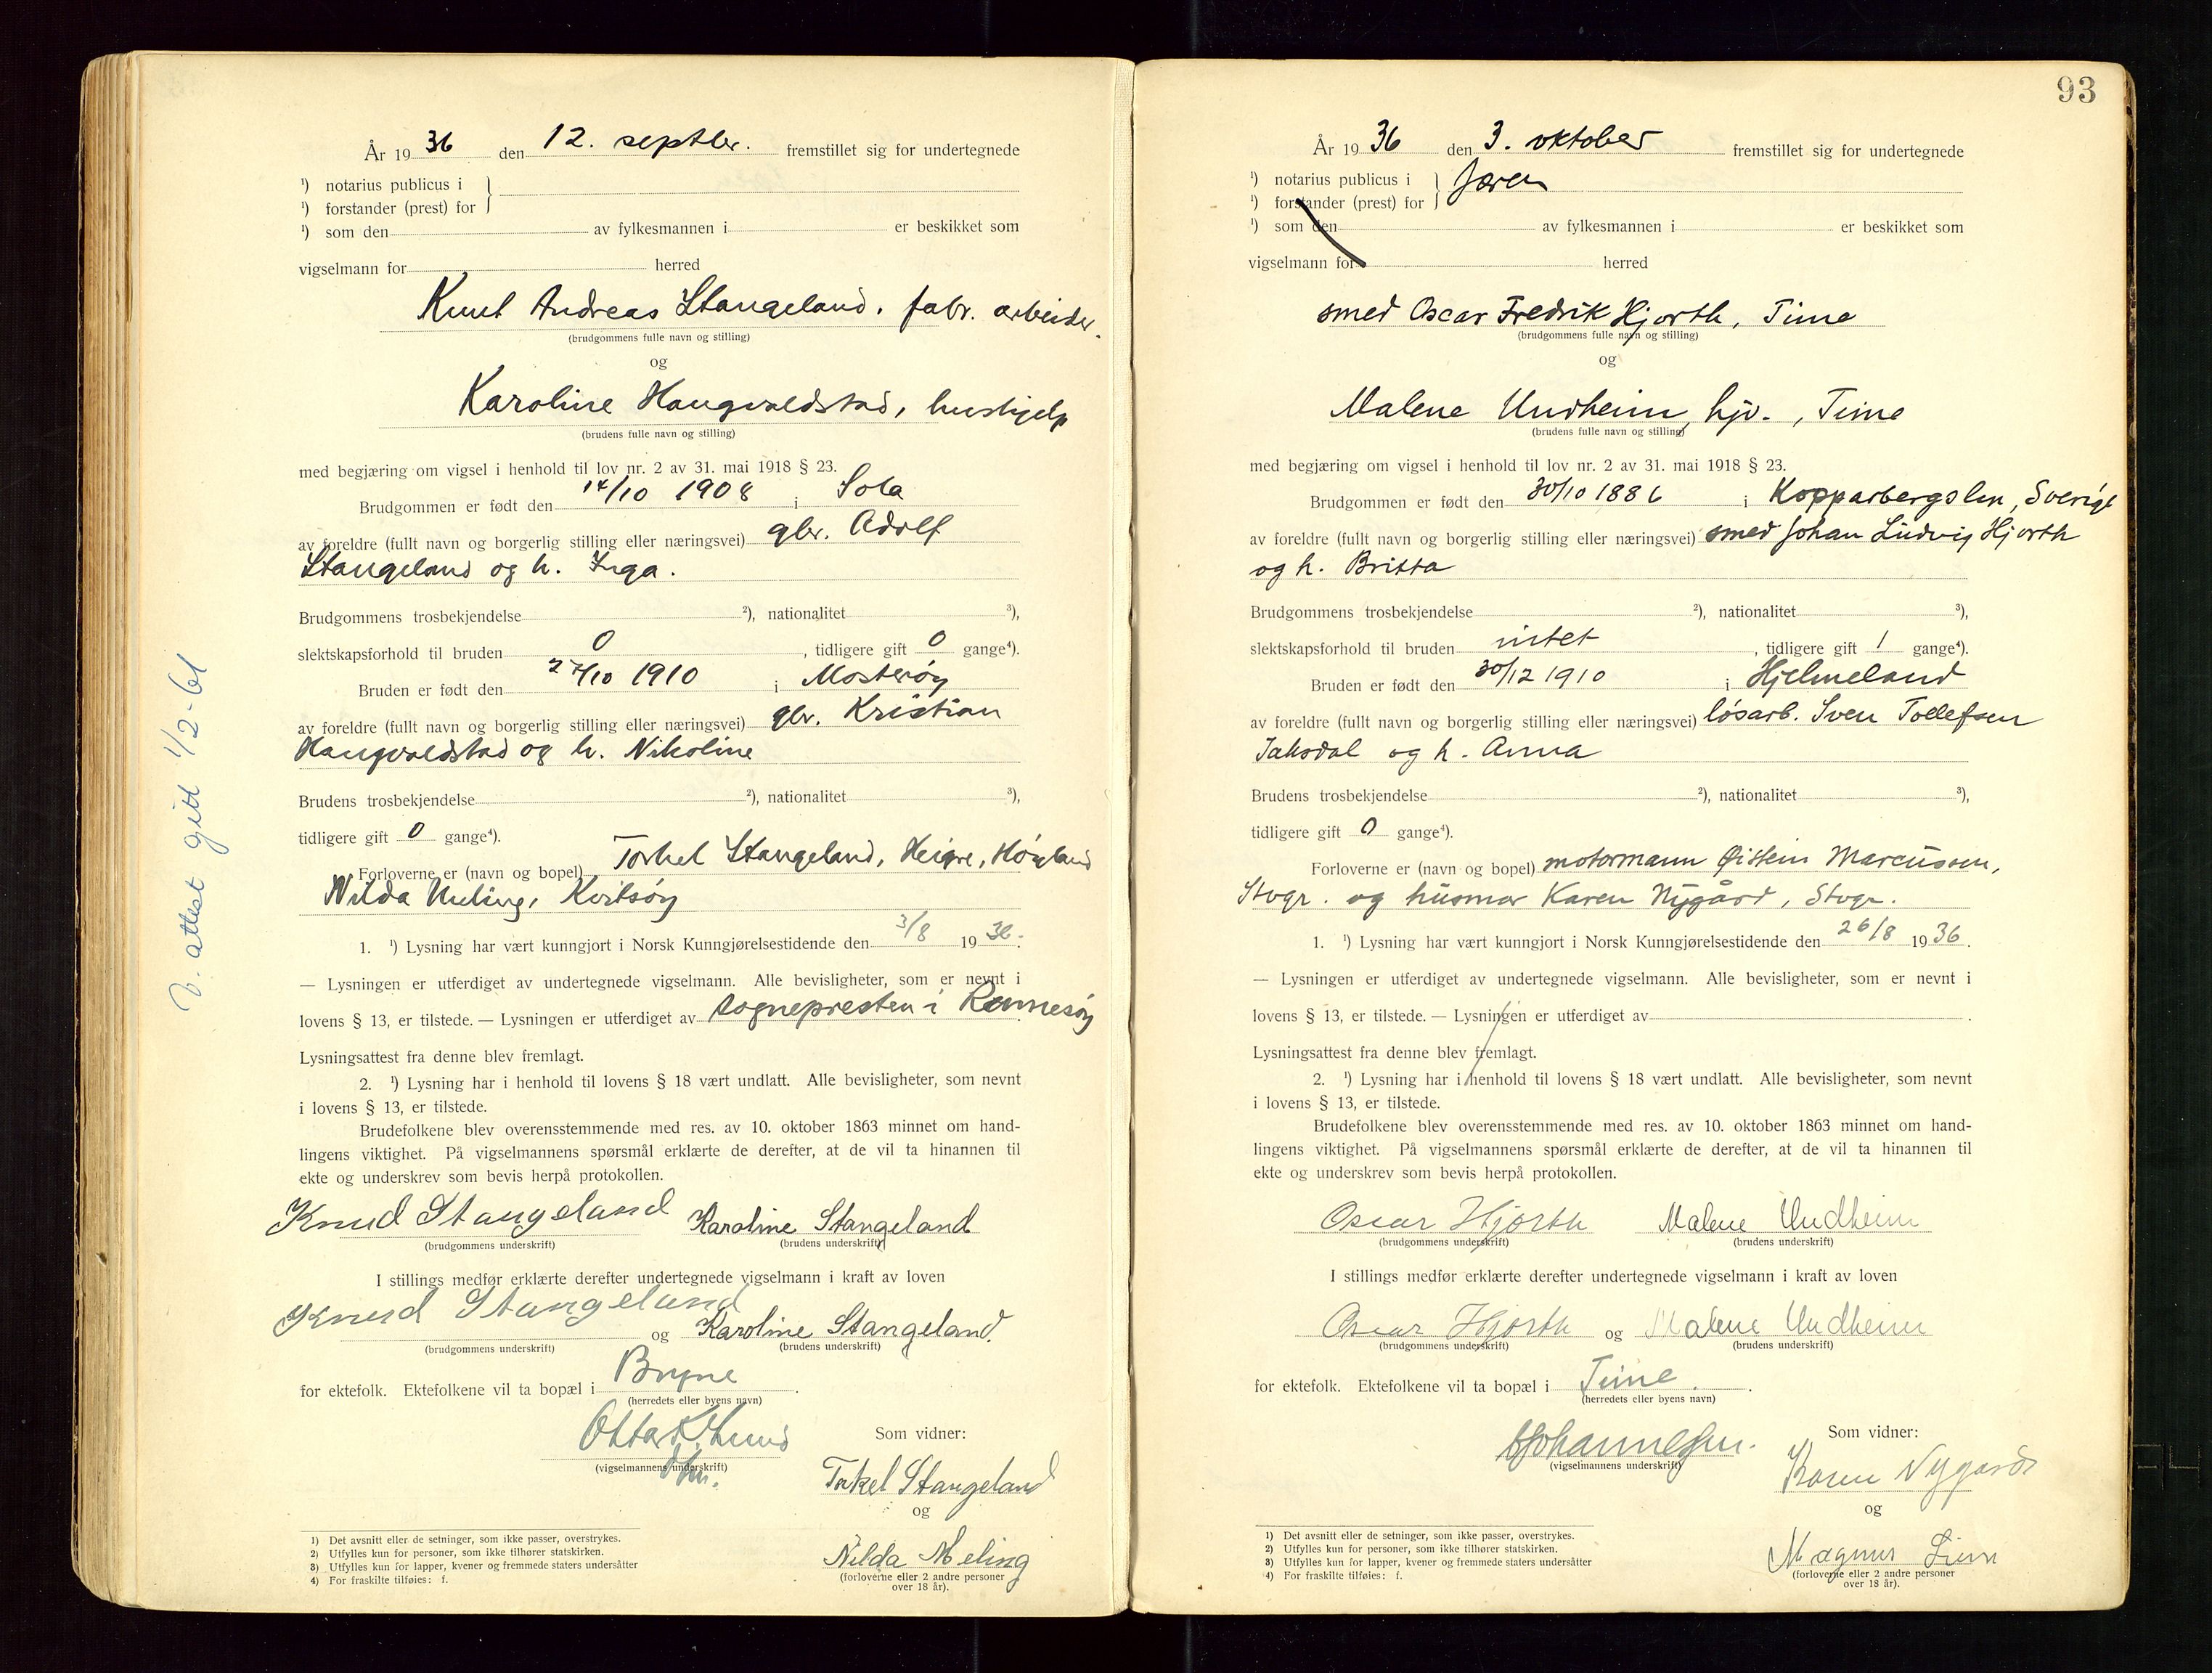 År 1936 den 12. septbr. fremstillet sig for undertegnede
¹) notarius publicus i }
¹) forstander (prest) for
¹) som den av fylkesmannen i er beskikket som
vigselmann for herred
Knut Andreas Stangeland. fabr. arbeider.
(brudgommens fulle navn og stilling)
og
Karoline Haugvaldstad, hushjelp
(brudens fulle navn og stilling)
med begjæring om vigsel i henhold til lov nr. 2 av 31. mai 1918 § 23.
Brudgommen er født den 14/10 1908 i Sola
av foreldre (fullt navn og borgerlig stilling eller næringsvei) gbr. Adolf
Stangeland og h. Inga.
Brudgommens trosbekjendelse ²), nationalitet ³),
slektskapsforhold til bruden 0, tidligere gift 0 gange⁴).
Bruden er født den 27/10 1910 i Mosterøy
av foreldre (fullt navn og borgerlig stilling eller næringsvei) gbr. Kristian
Haugvaldstad og h. Nikoline
Brudens trosbekjendelse ²), nationalitet ³),
tidligere gift 0 gange⁴).
Forloverne er (navn og bopel) Torkel Stangeland, Heigre, Høyland
Nilda Meling, Kvitsøy
1. ¹) Lysning har vært kunngjort i Norsk Kunngjørelsestidende den 3/8 1936.
— Lysningen er utferdiget av undertegnede vigselmann. Alle bevisligheter, som er nevnt i
lovens § 13, er tilstede. — Lysningen er utferdiget av sognepresten i Rennesøy
Lysningsattest fra denne blev fremlagt.
2. ¹) Lysning har i henhold til lovens § 18 vært undlatt. Alle bevisligheter, som nevnt
i lovens § 13, er tilstede.
Brudefolkene blev overensstemmende med res. av 10. oktober 1863 minnet om hand-
lingens viktighet. På vigselmannens spørsmål erklærte de derefter, at de vil ta hinannen til
ekte og underskrev som bevis herpå protokollen.
Knud Stangeland Karoline Stangeland
(brudgommens underskrift) (brudens underskrift)
I stillings medfør erklærte derefter undertegnede vigselmann i kraft av loven
Knud Stangeland og Karoline Stangeland.
(brudgommens underskrift) (brudens underskrift)
for ektefolk. Ektefolkene vil ta bopæl i Bryne.
(herredets eller byens navn)
Som vidner:
(vigselmannens underskrift)
Torkel Stangeland
og
Nilda Meling
(forloverne eller 2 andre personer
over 18 år).
1) Det avsnitt eller de setninger, som ikke passer, overstrykes.
2) Utfylles kun for personer, som ikke tilhører statskirken.
3) Utfylles kun for lapper, kvener og fremmede staters undersåtter
4) For fraskilte tilføies: f.
V. attest gitt 1/2-61
93
År 1936 den 3. oktober fremstillet sig for undertegnede
¹) notarius publicus i } Jæren
¹) forstander (prest) for
¹) som den av fylkesmannen i er beskikket som
vigselmann for herred
smed Oscar Fredrik Hjorth, Time
(brudgommens fulle navn og stilling)
og
Malene Undheim, hjv., Time
(brudens fulle navn og stilling)
med begjæring om vigsel i henhold til lov nr. 2 av 31. mai 1918 § 23.
Brudgommen er født den 30/10 1886 i Kopparbergslen, Sverige
av foreldre (fullt navn og borgerlig stilling eller næringsvei) smed Johan Ludvig Hjorth
og h. Britta
Brudgommens trosbekjendelse ²), nationalitet ³),
slektskapsforhold til bruden intet, tidligere gift 1 gange⁴).
Bruden er født den 30/12 1910 i Hjelmeland
av foreldre (fullt navn og borgerlig stilling eller næringsvei) løsarb. Sven Tollefsen
Taksdal og h. Anna
Brudens trosbekjendelse ²), nationalitet ³),
tidligere gift 0 gange⁴).
Forloverne er (navn og bopel) motormann Øistein Marcussen,
Stvgr. og husmor Karen Nygård, Stvgr.
1. ¹) Lysning har vært kunngjort i Norsk Kunngjørelsestidende den 26/8 1936.
— Lysningen er utferdiget av undertegnede vigselmann. Alle bevisligheter, som er nevnt i
lovens § 13, er tilstede. — Lysningen er utferdiget av .
Lysningsattest fra denne blev fremlagt.
2. ¹) Lysning har i henhold til lovens § 18 vært undlatt. Alle bevisligheter, som nevnt
i lovens § 13, er tilstede.
Brudefolkene blev overensstemmende med res. av 10. oktober 1863 minnet om hand-
lingens viktighet. På vigselmannens spørsmål erklærte de derefter, at de vil ta hinannen til
ekte og underskrev som bevis herpå protokollen.
Oscar Hjorth Malene Undheim
(brudgommens underskrift) (brudens underskrift)
I stillings medfør erklærte derefter undertegnede vigselmann i kraft av loven
Oscar Hjorth og Malene Undheim
(brudgommens underskrift) (brudens underskrift)
for ektefolk. Ektefolkene vil ta bopæl i Time.
(herredets eller byens navn)
Som vidner:
Johannessen.
(vigselmannens underskrift)
Karen Nygård
og
Magnus Lien
(forloverne eller 2 andre personer
over 18 år).
1) Det avsnitt eller de setninger, som ikke passer, overstrykes.
2) Utfylles kun for personer, som ikke tilhører statskirken.
3) Utfylles kun for lapper, kvener og fremmede staters undersåtter
4) For fraskilte tilføies: f.